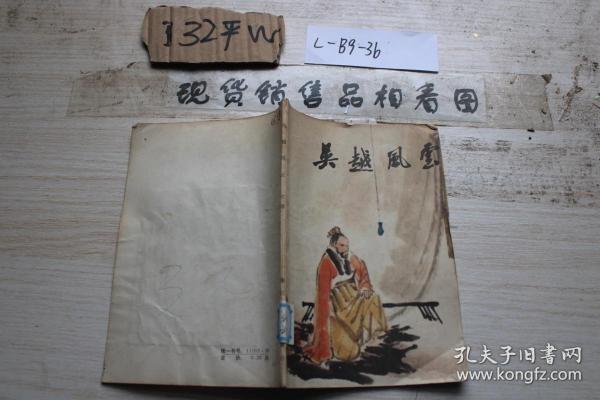 132平W
L-B9-36
现货销售品相看图
吴越风雲
统一书号
定价
孔夫子旧书网
www.kongfz.com